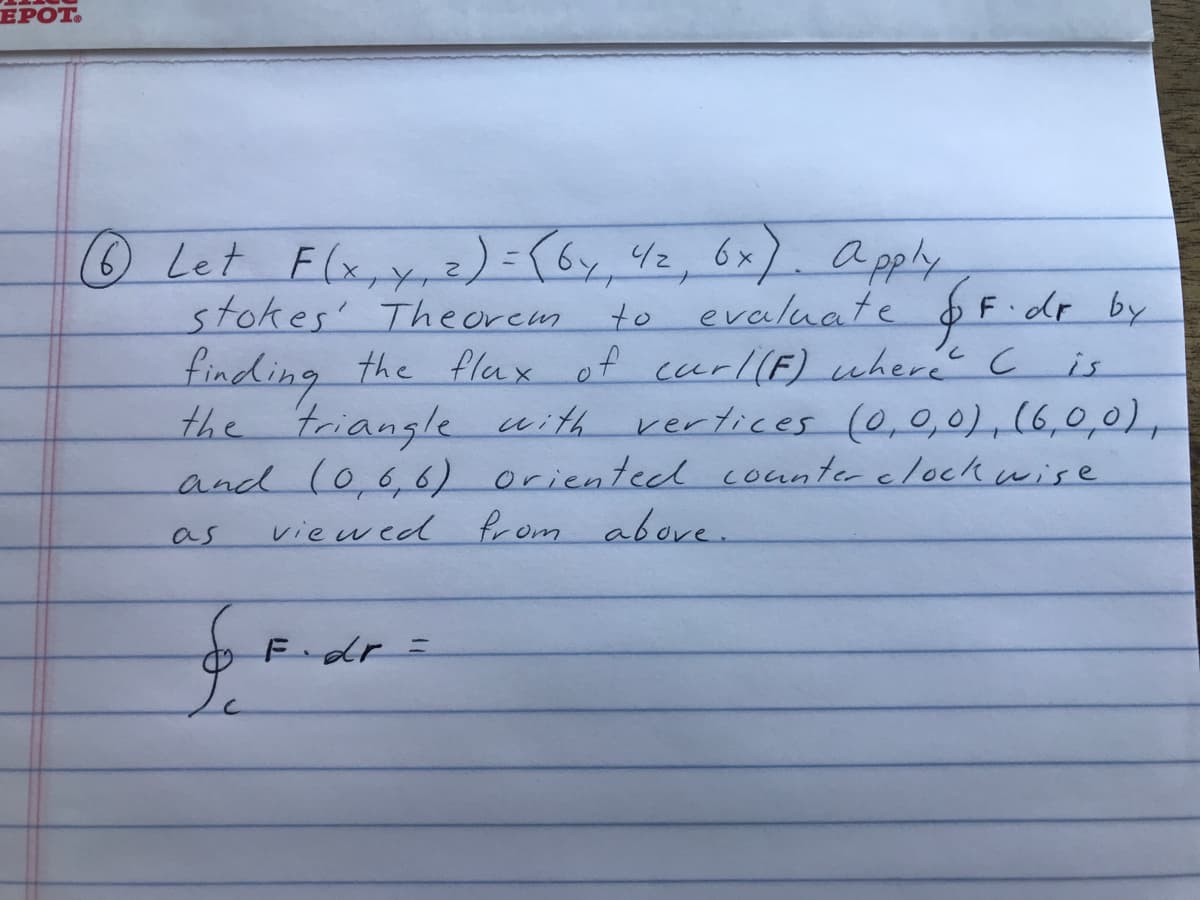 EPOT®
⑥ Let F(x,y,z)=⟨6y, 4z, 6x⟩. apply
stokes' Theorem to evaluate ∮c F·dr by
finding the flux of curl(F) where C is
the triangle with vertices (0,0,0), (6,0,0),
and (0,6,6) oriented counter clockwise
as viewed from above.
∮c F·dr =